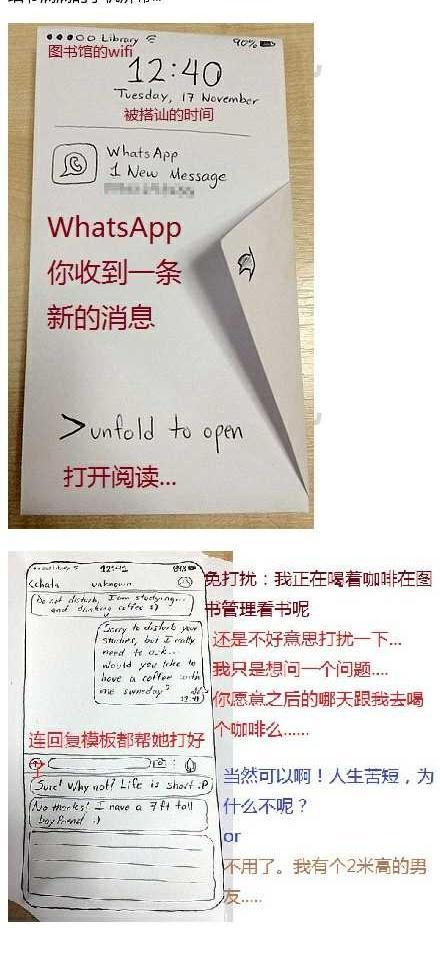 ●●●○○ Library
90%
图书馆的wifi
12:40
Tuesday, 17 November
被搭讪的时间
WhatsApp
1 New Message
WhatsApp
你收到一条
新的消息
>unfold to open
打开阅读...
12:41
<chats unknown
Do not disturb, I am studying...
and drinking coffee :)
Sorry to disturb your
studies, but I really
need to ask...
would you like to
have a coffee with
me someday?
免打扰：我正在喝着咖啡在图
书管理看书呢
还是不好意思打扰一下...
我只是想问一个问题....
你愿意之后的哪天跟我去喝
个咖啡么......
连回复模板都帮她打好了
Sure! Why not? Life is short :P
No thanks! I have a 7ft tall
boyfriend :)
当然可以啊！人生苦短，为
什么不呢？
or
不用了。我有个2米高的男
友.....